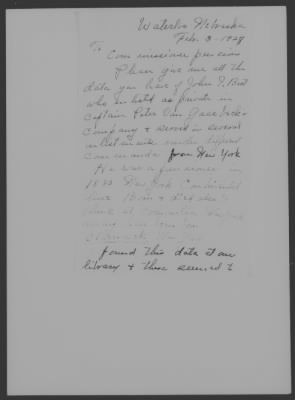 Waterloo Nebraska
Feb. 3 - 1928
To
Commissioner pension
Please give me all the
data you have of John I. Bort
who enlisted as private in
Captain Peter Van
Company & served in several
enlistments under different
Commands from New York
He was a pensioner in
1833 New York Continental
Line Born &
died at New York
New York
found this data at our
library & there seemed to